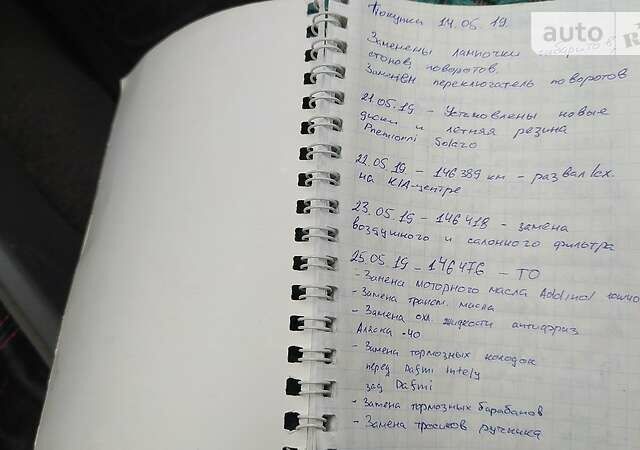 auto R
Покупка 14.05.19
Заменены лампочки габаритов,
стопов, поворотов.
Заменён переключатель поворотов
21.05.19 - Установлены новые
диски и летняя резина
Premiorri Solazo
22.05.19 - 146389 км - развал/сх.
на KIA-центре
23.05.19 - 146418 - замена
воздушного и салонного фильтра
25.05.19 - 146476 - ТО
- Замена моторного масла Addinol
- Замена трансм. масла
- Замена охл. жидкости антифриз
Аляска -40
- Замена тормозных колодок
перед Dafmi Intelly
зад Dafmi
- Замена тормозных барабанов
- Замена тросиков ручника